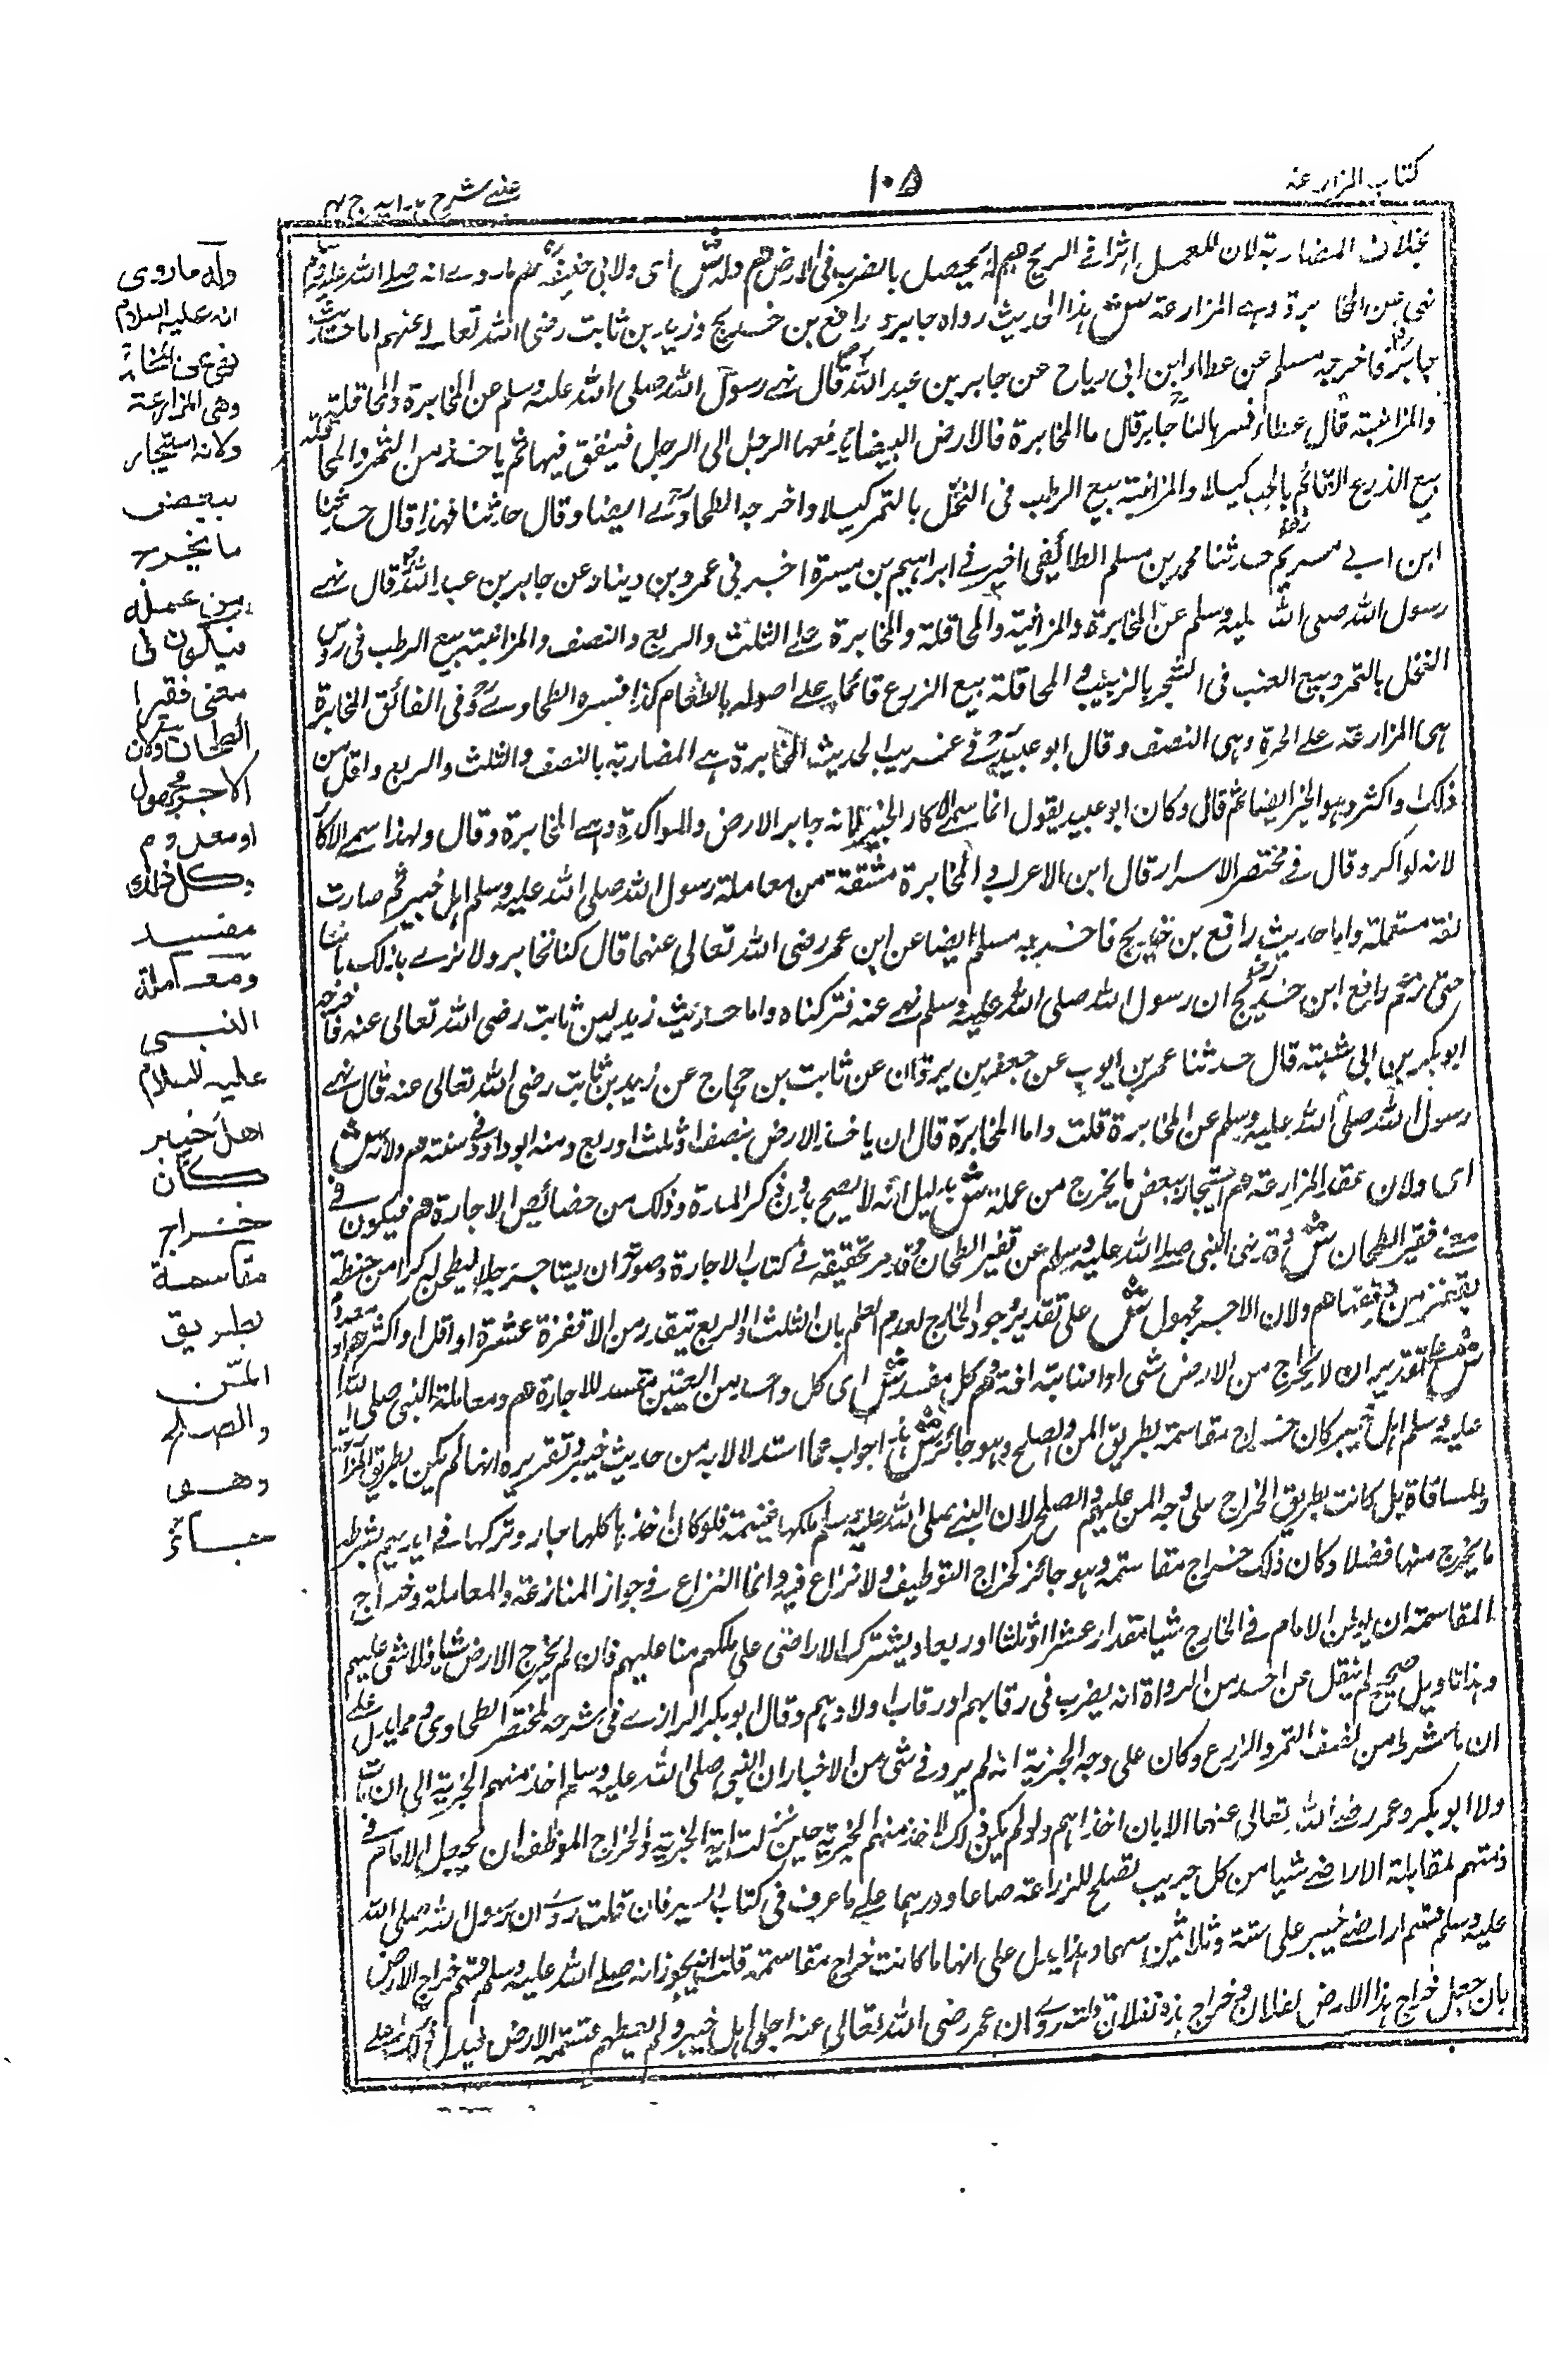 كتاب المزارعة
١٠٥
عينى شرح هدايه ج ٣
بخلاف المضاربة لان للعمل اثرا فى الربح هم لا يحصل بالضرب فى الارض هم وله ش اى ولابى حنيفة هم ما روى انه صلى الله عليه وسلم
نهى عن المخابرة وهى المزارعة ش هذا الحديث رواه جابر و رافع بن خديج وزيد بن ثابت رضى الله تعالى عنهم اما حديث
جابر فاخرجه مسلم عن عطاء ابن ابى رباح عن جابر بن عبد الله قال نهى رسول الله صلى الله عليه وسلم عن المخابرة والمحاقلة
والمزابنة قال عطاء فسرها لنا جابر قال ما المخابرة فالارض البيضاء يدفعها الرجل الى الرجل فينفق فيها ثم ياخذ من الثمر والمحاقلة
بيع الذرع القائم بالحب كيلا والمزابنة بيع الرطب فى النخل بالتمر كيلا واخرجه الطحاوى ايضا وقال حدثنا فهد قال حدثنا
ابن ابى مريم حدثنا محمد بن مسلم الطائفى اخبرنى ابراهيم بن ميسرة اخبرنى عمرو بن دينار عن جابر بن عبد الله قال نهى
رسول الله صلى الله عليه وسلم عن المخابرة والمزابنة والمحاقلة والمخابرة على الثلث والربع والنصف والمزابنة بيع الرطب فى روس
النخل بالتمر وبيع العنب فى الشجر بالزبيب والمحاقلة بيع الزرع قائما على اصوله بالطعام كذا فسره الطحاوى وفى الفائق المخابرة
هى المزارعة على الخبرة وهى النصف وقال ابو عبيد فى غريب الحديث المخابرة هى المضاربة بالنصف والثلث والربع واقل من
ذلك واكثر وهو الخبر ايضا ثم قال وكان ابو عبيد يقول انما سمى الاكار الخبير لانه جابر الارض والمواكرة وهى المخابرة وقال ولهذا سمى الاكار
لانه يواكر وقال فى مختصر الاسرار قال ابن الاعرابى المخابرة مشتقة من معاملة رسول الله صلى الله عليه وسلم اهل خيبر ثم صارت
لغة مستعملة واما حديث رافع بن خديج فاخرجه مسلم ايضا عن ابن عمر رضى الله تعالى عنهما قال كنا نخابر ولا نرى بذلك باسا
حتى زعم رافع ابن خديج ان رسول الله صلى الله عليه وسلم نهى عنه فتركناه واما حديث زيد بن ثابت رضى الله تعالى عنه فاخرجه
ابو بكر بن ابى شيبة قال حدثنا عمر بن ايوب عن جعفر بن برقان عن ثابت بن حجاج عن زيد بن ثابت رضى الله تعالى عنه قال نهى
رسول الله صلى الله عليه وسلم عن المخابرة قلت واما المخابرة قال ان ياخذ الارض بنصف او ثلث او ربع ومنه ابو داود فى سننه هم ولانه ش
اى ولان عقد المزارعة هم استيجار ببعض ما يخرج من عمله ش بدليل انه لا يصح بدون ذكر المدة وذلك من خصائص الاجارة هم فيكون فى
معنى قفيز الطحان ش وقد نهى النبى صلى الله عليه وسلم عن قفيز الطحان وقد مر تحقيقه فى كتاب الاجارة وصورته ان يستاجر رجلا ليطحن له كرا من حنطة
بقفيز من دقيقها هم ولان الاجر مجهول ش على تقدير وجود الخارج لعدم العلم بان الثلث او الربع يتقدر من الاقفزة عشرة او اقل او اكثر هم او معدوم
ش على تقدير ان لا يخرج من الارض شى او اصابته افة هم وكل مفسد ش اى كل واحد من المعنيين مفسد للاجارة هم ومعاملة النبى صلى الله
عليه وسلم اهل خيبر كان خراج مقاسمة بطريق المن والصلح وهو جائز ش هذا جواب عما استدلا لا به من حديث خيبر وتقريره انها لم يكن بطريق المزارعة
والمساقاة بل كانت بطريق الخراج على وجه المن عليهم والصلح لان النبى صلى الله عليه وسلم ملكها غنيمة فلو كان اخذها كلها جاز وتركها فى ايديهم بشطر
ما يخرج منها فضلا وكان ذلك خراج مقاسمة وهو جائز كخراج التوظيف ولا نزاع فيه وانما النزاع فى جواز المزارعة والمعاملة وخراج
المقاسمة ان يوظف الامام فى الخارج شيا مقدار عشرا او ثلثا او ربعا ويترك الاراضى على ملكهم منا عليهم فان لم يخرج الارض شيا فلا شى عليهم
وهذا تاويل صحيح لم ينقل عن احد من الرواة انه يضرب فى رقابهم او رقاب اولادهم وقال ابو بكر الرازى فى شرحه لمختصر الطحاوى ومما يدل على
ان ما شرط من نصف التمر والزرع وكان على وجه الجزية انه لم يرو فى شى من الاخبار ان النبى صلى الله عليه وسلم اخذ منهم الجزية الى ان مات
ولا ابو بكر وعمر رضى الله تعالى عنهما الا بان اخذ اهم ولو لم يكن ذلك لاخذ منهم الجزية حين نزلت اية الجزية والخراج الموظف ان يجعل الامام فى
ذمتهم لمقابلة الاراضى شيا من كل جريب تصلح للزراعة صاعا ودرهما على ما عرف فى كتاب السير فان قلت روى ان رسول الله صلى الله
عليه وسلم قسم اراضى خيبر على ستة وثلاثين سهما وهذا يدل على انها ما كانت خراج مقاسمة قلت يجوز انه صلى الله عليه وسلم قسم خراج الارض
بان جعل خراج هذا الارض لفلان وخراج هذه لفلان قلت روى ان عمر رضى الله تعالى عنه اجلى اهل خيبر ولم يعطهم قيمة الارض فيدل ذلك على
وله ما روى
انه عليه السلام
نهى عن المخابرة
وهى المزارعة
ولانه استيجار
ببعض
ما يخرج
من عمله
فيكون فى
معنى قفيز
الطحان ولان
الاجر مجهول
او معدوم
وكل ذلك
مفسد
ومعاملة
النبى
عليه السلام
اهل خيبر
كان
خراج
مقاسمة
بطريق
المن
والصلح
وهو
جائز